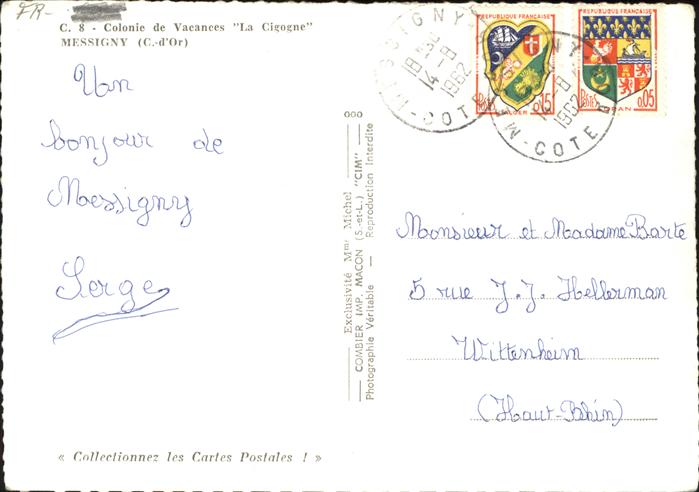 FR-
C. 8 - Colonie de Vacances "La Cigogne"
MESSIGNY (C.-d'Or)
Un
bonjour de
Messigny
Serge
« Collectionnez les Cartes Postales ! »
Exclusivité Mme Michel
COMBIER IMP. MACON (S.-et-L.) "CIM"
Photographie Véritable — Reproduction Interdite
MESSIGNY
18H30
14-8
1962
COTE D'OR
REPUBLIQUE FRANÇAISE
POSTES
0,15
ALGER
REPUBLIQUE FRANÇAISE
POSTES
0,05
ORAN
1962
COTE D'OR
Monsieur et Madame Barte
5 rue J. J. Hellerman
Wittenheim
(Haut-Rhin)